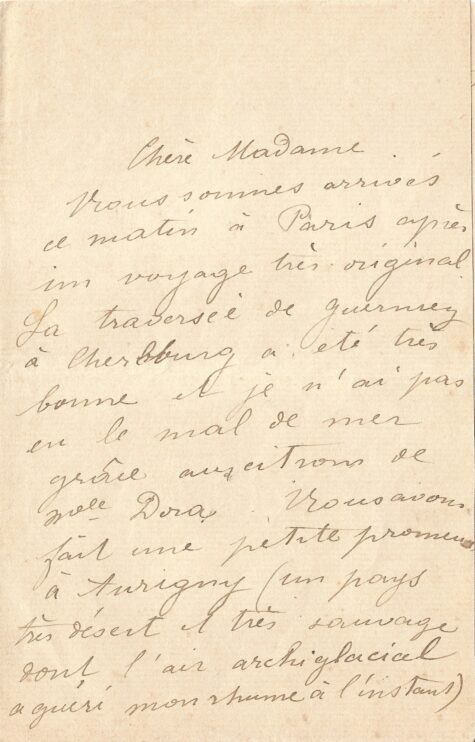 Chère Madame
Nous sommes arrivés
ce matin à Paris après
un voyage très original.
La traversée de guernesey
à Cherbburg a été très
bonne et je n'ai pas
eu le mal de mer
grâce aux citrons de
Melle Dora. Nous avons
fait une petite promena
à Aurigny (un pays
très désert et très sauvage
dont l'air archiglacial
a guéri mon rhume à l'instant)